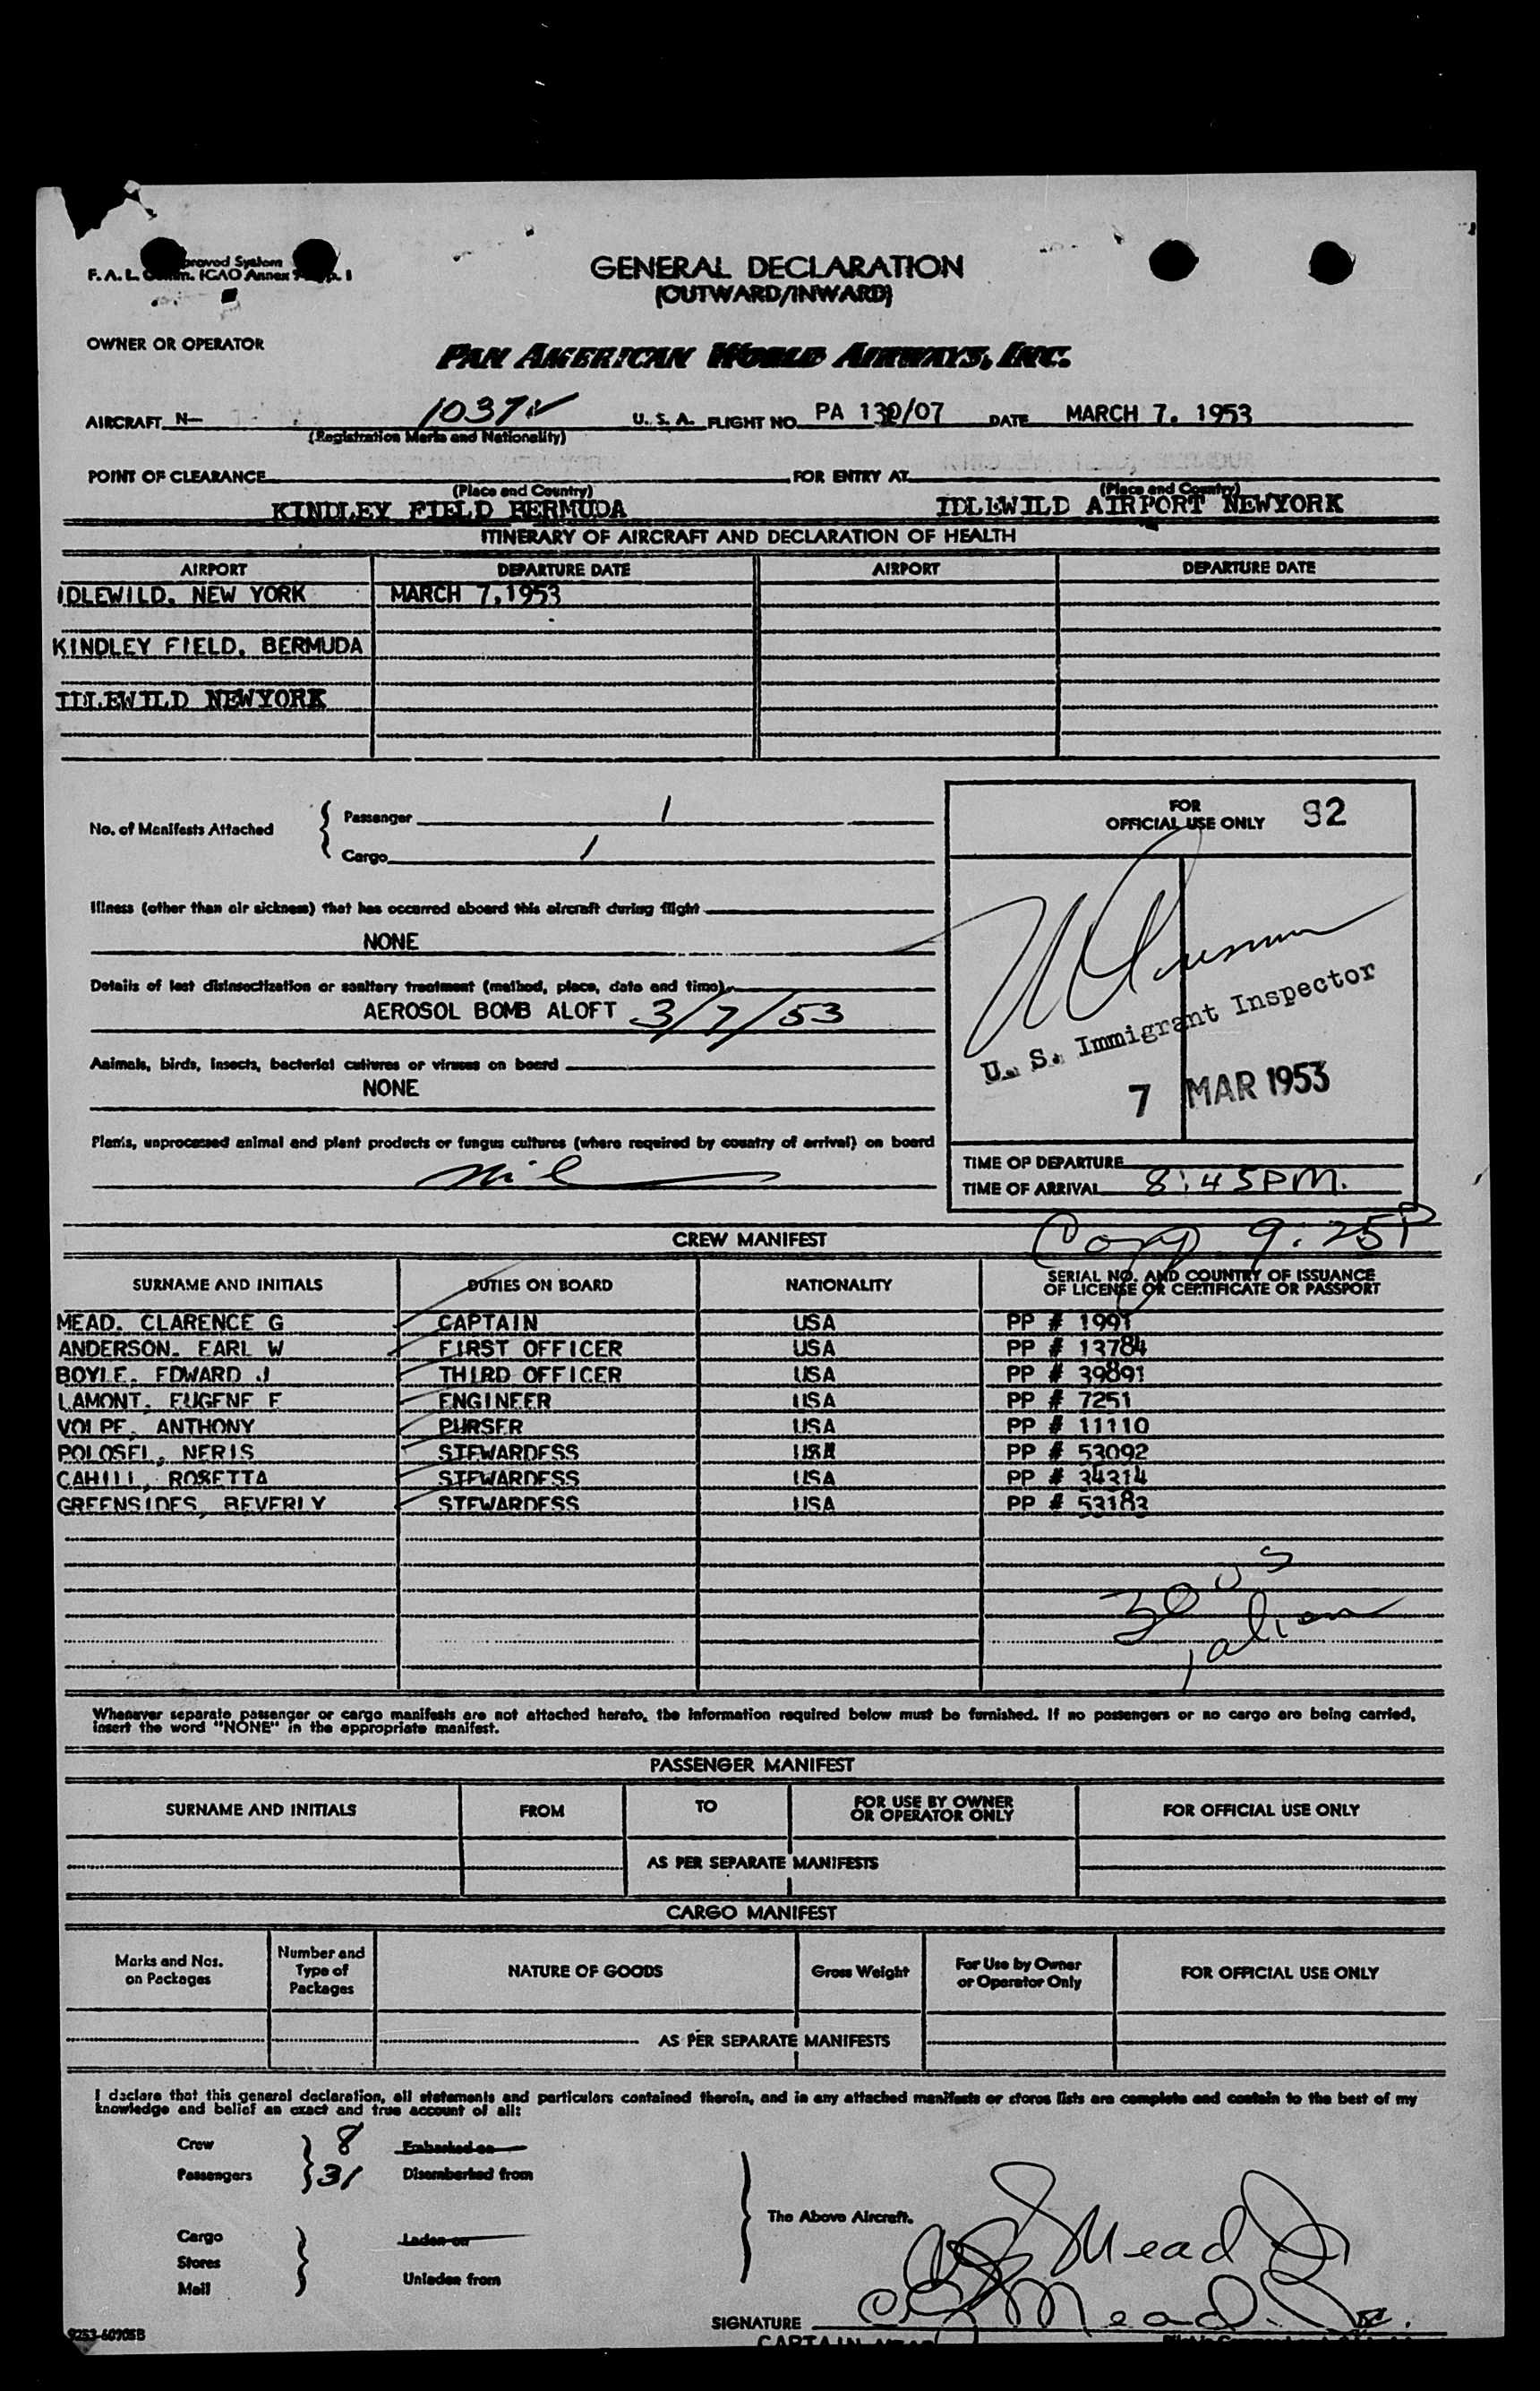 proved System
F. A. L. Comm. ICAO Annex
GENERAL DECLARATION
(OUTWARD/INWARD)
OWNER OR OPERATOR
PAN AMERICAN WORLD AIRWAYS, INC.
AIRCRAFT N- 1037V U. S. A. FLIGHT NO. PA 130/07 DATE MARCH 7. 1953
(Registration Marks and Nationality)
POINT OF CLEARANCE FOR ENTRY AT
(Place and Country) (Place and Country)
KINDLEY FIELD BERMUDA IDLEWILD AIRPORT NEWYORK
ITINERARY OF AIRCRAFT AND DECLARATION OF HEALTH
AIRPORT DEPARTURE DATE AIRPORT DEPARTURE DATE
IDLEWILD, NEW YORK MARCH 7,1953
KINDLEY FIELD, BERMUDA
IDLEWILD NEWYORK
No. of Manifests Attached
Passenger 1
Cargo 1
FOR
OFFICIAL USE ONLY 92
Illness (other than air sickness) that has occurred aboard this aircraft during flight
NONE
Details of last disinsectization or sanitary treatment (method, place, date and time)
AEROSOL BOMB ALOFT 3/7/53
Animals, birds, insects, bacterial cultures or viruses on board
NONE
Plants, unprocessed animal and plant products or fungus cultures (where required by country of arrival) on board
nil
U. S. Immigrant Inspector
7 MAR 1953
TIME OF DEPARTURE
TIME OF ARRIVAL 8:45PM.
9:25P
CREW MANIFEST
SURNAME AND INITIALS DUTIES ON BOARD NATIONALITY SERIAL NO. AND COUNTRY OF ISSUANCE
OF LICENSE OR CERTIFICATE OR PASSPORT
MEAD. CLARENCE G CAPTAIN USA PP # 1991
ANDERSON. EARL W FIRST OFFICER USA PP # 13784
BOYLE. EDWARD J THIRD OFFICER USA PP # 39891
LAMONT. EUGENE F ENGINEER USA PP # 7251
VOLPE, ANTHONY PURSER USA PP # 11110
POLOSEL, NERIS STEWARDESS USA PP # 53092
CAHILL, ROSETTA STEWARDESS USA PP # 34314
GREENSIDES, BEVERLY STEWARDESS USA PP # 53183
30 US
1 alien
Whenever separate passenger or cargo manifests are not attached hereto, the information required below must be furnished. If no passengers or no cargo are being carried,
insert the word "NONE" in the appropriate manifest.
PASSENGER MANIFEST
SURNAME AND INITIALS FROM TO FOR USE BY OWNER
OR OPERATOR ONLY FOR OFFICIAL USE ONLY
AS PER SEPARATE MANIFESTS
CARGO MANIFEST
Marks and Nos.
on Packages
Number and
Type of
Packages
NATURE OF GOODS Gross Weight For Use by Owner
or Operator Only FOR OFFICIAL USE ONLY
AS PER SEPARATE MANIFESTS
I declare that this general declaration, all statements and particulars contained therein, and in any attached manifests or stores lists are complete and contain to the best of my
knowledge and belief an exact and true account of all:
Crew 8 Embarked on
Passengers 31 Disembarked from
The Above Aircraft.
Cargo Laden on
Stores
Mail Unladen from
CG Mead Jr
SIGNATURE CG Mead Jr.
CAPTAIN MEAD
9253-60905B